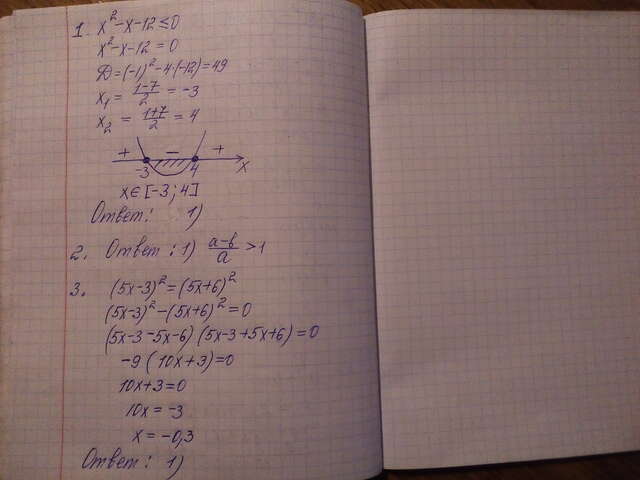 1. x² - x - 12 ≤ 0
x² - x - 12 = 0
D = (-1)² - 4·(-12) = 49
x₁ = (1-7)/2 = -3
x₂ = (1+7)/2 = 4
+ − +
-3 4 x
x ∈ [-3; 4]
Ответ: 1)
2. Ответ: 1) (a-b)/a > 1
3. (5x-3)² = (5x+6)²
(5x-3)² - (5x+6)² = 0
(5x-3-5x-6) (5x-3+5x+6) = 0
-9 (10x+3) = 0
10x+3=0
10x = -3
x = -0,3
Ответ: 1)